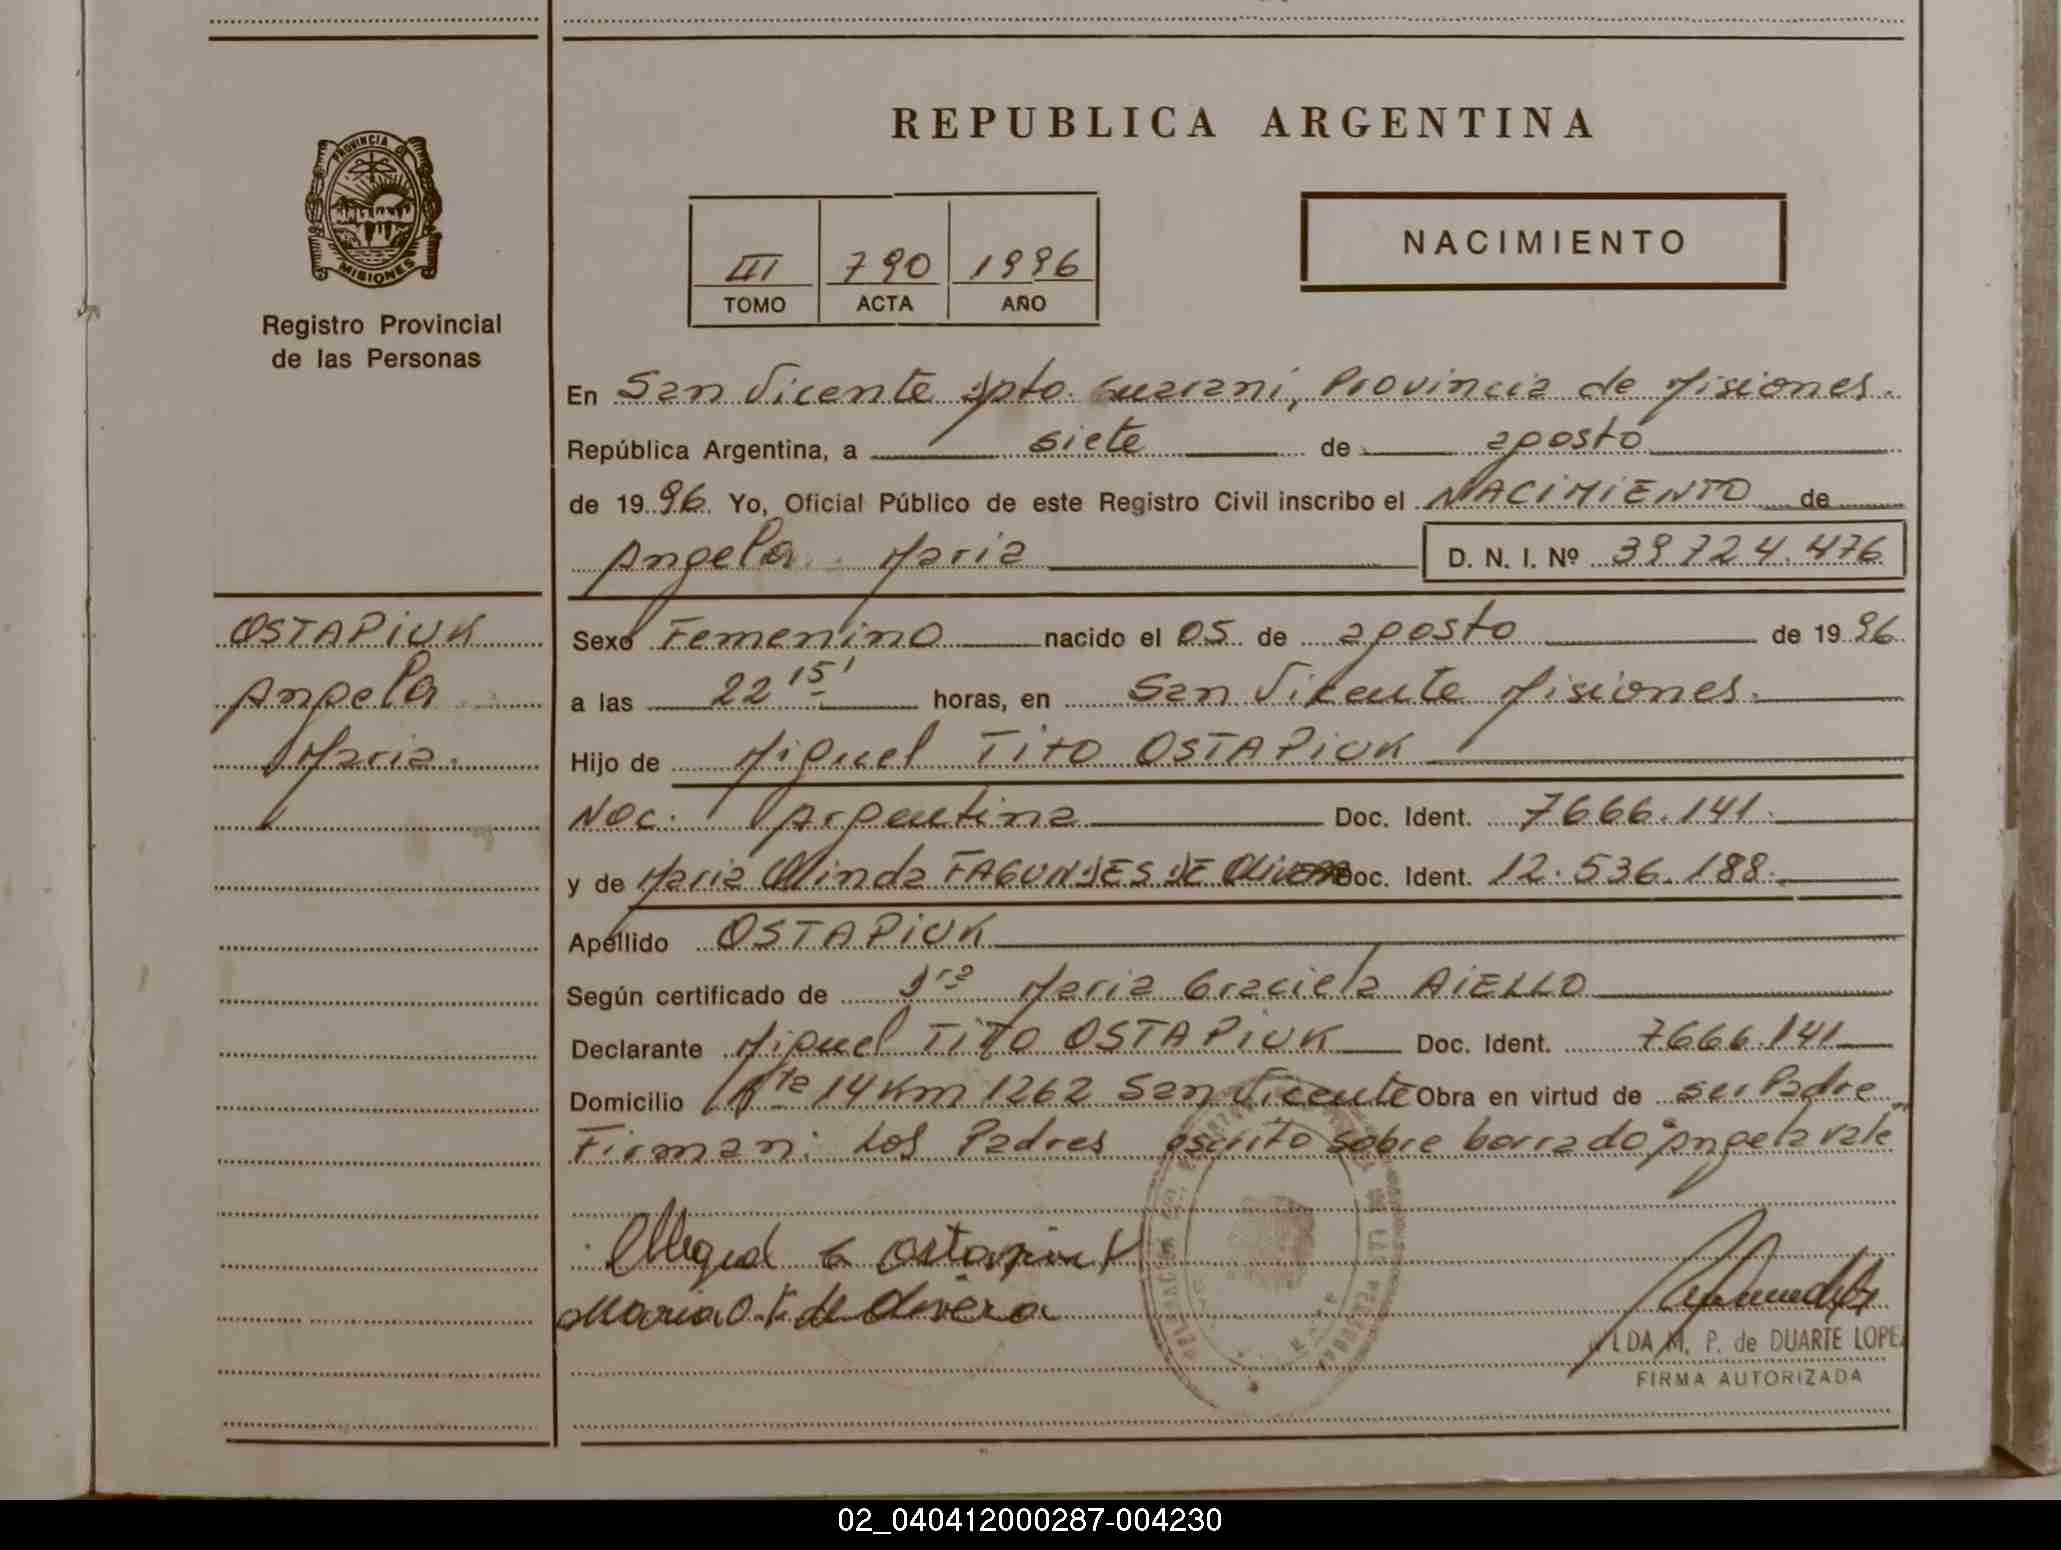 PROVINCIA DE
MISIONES
Registro Provincial
de las Personas
REPUBLICA ARGENTINA
III 790 1996
TOMO ACTA AÑO
NACIMIENTO
En San Vicente Dpto. Guarani, Provincia de Misiones.
República Argentina, a siete de agosto
de 1996. Yo, Oficial Público de este Registro Civil inscribo el NACIMIENTO de
Angela Maria D. N. I. Nº 39724.476
OSTAPIUK
Angela
Maria.
Sexo Femenino nacido el 05 de agosto de 1996
a las 22 15' horas, en San Vicente Misiones.
Hijo de Miguel Tito OSTAPIUK
Nac. Argentina Doc. Ident. 7666.141.
y de Maria Olinda FAGUNDES DE Olivera Doc. Ident. 12.536.188.
Apellido OSTAPIUK
Según certificado de Dra Maria Graciela AIELLO
Declarante Miguel TITO OSTAPIUK Doc. Ident. 7666.141
Domicilio Rta 14 Km 1262 San Vicente Obra en virtud de su Padre
Firman: Los Padres escrito sobre borrado "Angela" vale
Ostapiuk
Maria O. F. de Olivera
LDA M. P. de DUARTE LOPE
FIRMA AUTORIZADA
02_040412000287-004230